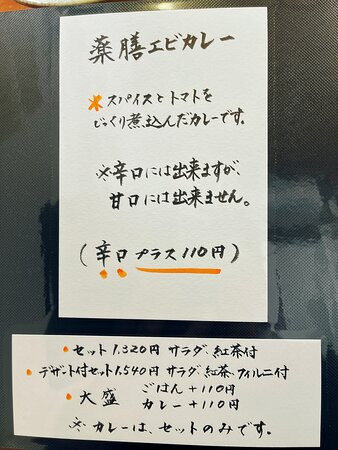 薬膳エビカレー
※スパイスとトマトを
じっくり煮込んだカレーです。
※辛口には出来ますが、
甘口には出来ません。
(辛口プラス110円)
・セット1,320円 サラダ、紅茶付
・デザート付セット1,540円 サラダ、紅茶、フィルニ付
・大盛 ごはん+110円
カレー+110円
※カレーは、セットのみです。